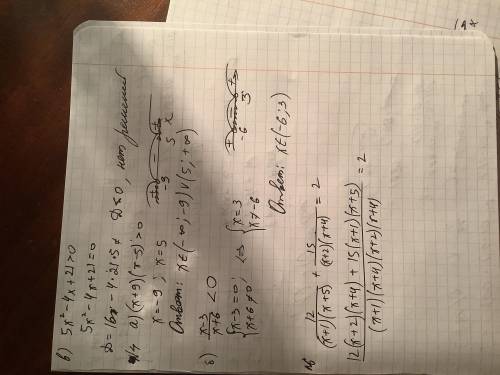 в) 5x² - 4x + 21 > 0
5x² - 4x + 21 = 0
D = 16 - 4·21·5 D < 0, нет решений
№4 а) (x+9)(x-5) > 0
x = -9; x = 5
+ - +
5 x
Ответ: x∈(-∞; -9)∨(5; +∞)
б) (x-3)/(x+6) < 0
{x-3=0; x+6≠0; <=> {x=3 x≠-6
+ - +
-6 3
Ответ: x∈(-6; 3)
12/((x+1)(x+5)) + 15/((x+2)(x+4)) = 2
(12(x+2)(x+4) + 15(x+1)(x+5))/((x+1)(x+4)(x+2)(x+4)) = 2